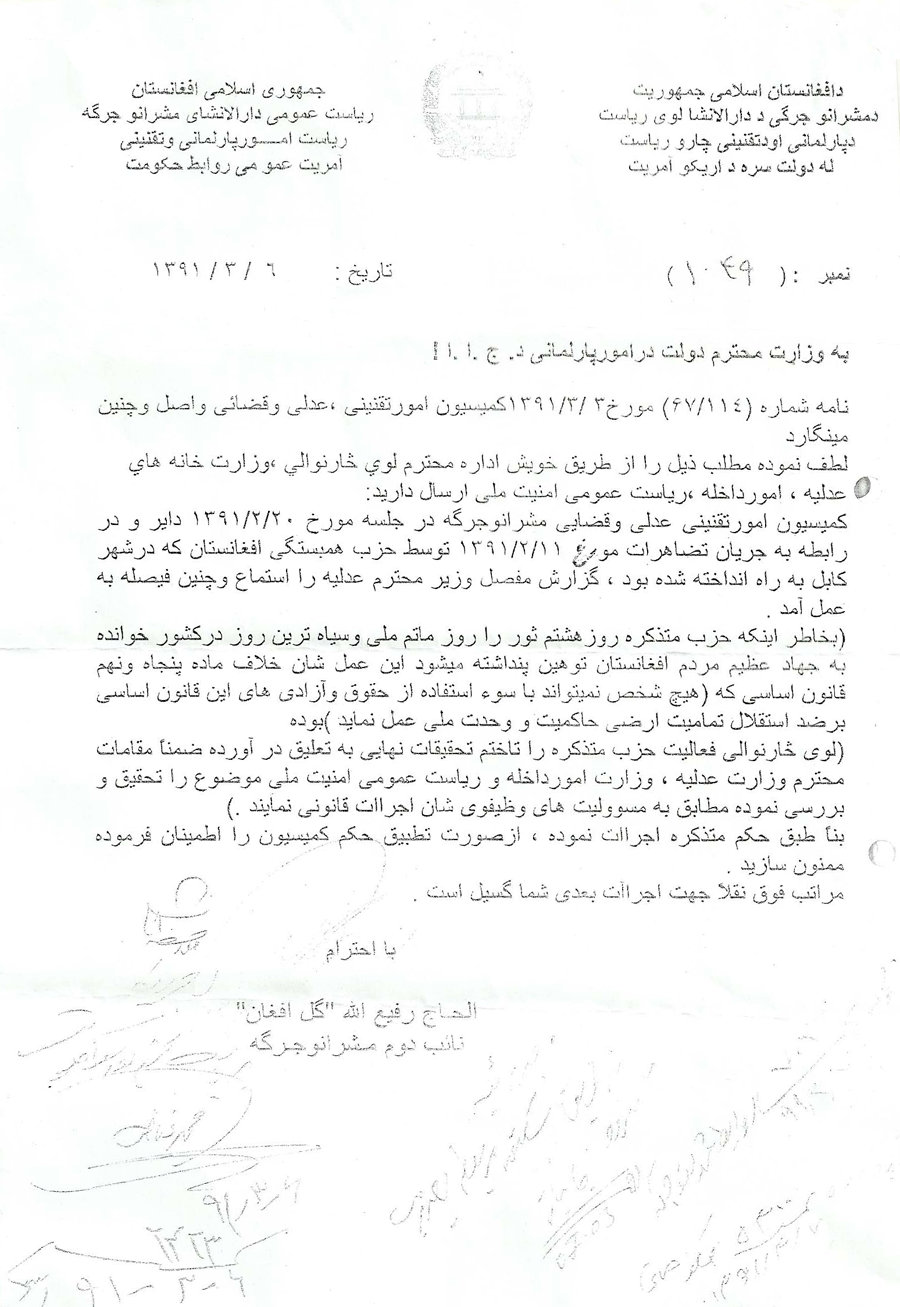 جمهوری اسلامی افغانستان
ریاست عمومی دارالانشای مشرانو جرگه
ریاست امـــورپارلمانی وتقنینی
آمریت عمو می روابط حکومت
دافغانستان اسلامی جمهوریت
دمشرانو جرگی د دارالانشا لوی ریاست
دپارلمانی اودتقنینی چارو ریاست
له دولت سره د اریکو آمریت
نمبر : ( ۱۰۴۹ )
تاریخ : ۶ / ۳ / ۱۳۹۱
به وزارت محترم دولت درامورپارلمانی د. ج .ا .ا !
نامه شماره (۶۷/۱۱۴) مورخ۳ /۱۳۹۱/۳کمیسیون امورتقنینی ،عدلی وقضائی واصل وچنین
مینگارد
لطف نموده مطلب ذیل را از طریق خویش اداره محترم لوي څارنوالي ،وزارت خانه هاي
عدلیه ، امورداخله ،ریاست عمومی امنیت ملی ارسال دارید:
کمیسیون امورتقنینی عدلی وقضایی مشرانوجرگه در جلسه مورخ ۱۳۹۱/۲/۲۰ دایر و در
رابطه به جریان تضاهرات مورخ ۱۳۹۱/۲/۱۱ توسط حزب همبستگی افغانستان که درشهر
کابل به راه انداخته شده بود ، گزارش مفصل وزیر محترم عدلیه را استماع وچنین فیصله به
عمل آمد .
(بخاطر اینکه حزب متذکره روزهشتم ثور را روز ماتم ملی وسیاه ترین روز درکشور خوانده
به جهاد عظیم مردم افغانستان توهین پنداشته میشود این عمل شان خلاف ماده پنجاه ونهم
قانون اساسی که (هیچ شخص نمیتواند با سوء استفاده از حقوق وآزادی های این قانون اساسی
برضد استقلال تمامیت ارضی حاکمیت و وحدت ملی عمل نماید )بوده
(لوی څارنوالی فعالیت حزب متذکره را تاختم تحقیقات نهایی به تعلیق در آورده ضمناً مقامات
محترم وزارت عدلیه ، وزارت امورداخله و ریاست عمومی امنیت ملی موضوع را تحقیق و
بررسی نموده مطابق به مسوولیت های وظیفوی شان اجراات قانونی نمایند .)
بناً طبق حکم متذکره اجراات نموده ، ازصورت تطبیق حکم کمیسیون را اطمینان فرموده
ممنون سازید .
مراتب فوق نقلاً جهت اجراآت بعدی شما گسیل است .
با احترام
الحاج رفیع الله "گل افغان"
نائب دوم مشرانوجرگه
۹۱-۳-۶